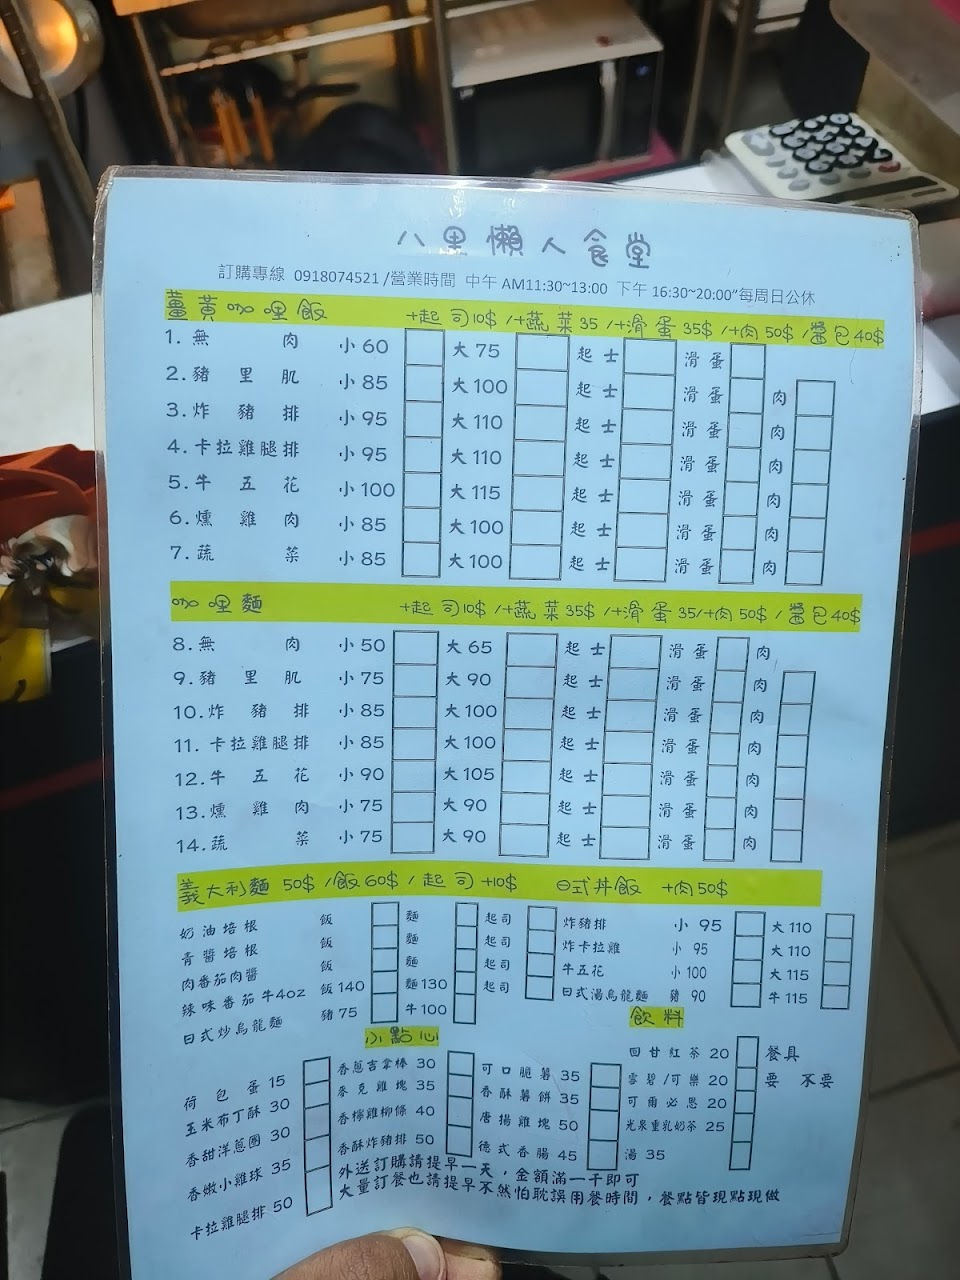 八里懶人食堂
訂購專線 0918074521 /營業時間 中午 AM11:30~13:00 下午 16:30~20:00"每周日公休
薑黃咖哩飯 +起司10$ /+蔬菜35 /+滑蛋35$ /+肉50$ /醬包40$
1. 無肉 小60 大75 起士 滑蛋
2. 豬里肌 小85 大100 起士 滑蛋 肉
3. 炸豬排 小95 大110 起士 滑蛋 肉
4. 卡拉雞腿排 小95 大110 起士 滑蛋 肉
5. 牛五花 小100 大115 起士 滑蛋 肉
6. 燻雞肉 小85 大100 起士 滑蛋 肉
7. 蔬菜 小85 大100 起士 滑蛋 肉
咖哩麵 +起司10$ /+蔬菜35$ /+滑蛋35/+肉50$ /醬包40$
8. 無肉 小50 大65 起士 滑蛋 肉
9. 豬里肌 小75 大90 起士 滑蛋 肉
10. 炸豬排 小85 大100 起士 滑蛋 肉
11. 卡拉雞腿排 小85 大100 起士 滑蛋 肉
12. 牛五花 小90 大105 起士 滑蛋 肉
13. 燻雞肉 小75 大90 起士 滑蛋 肉
14. 蔬菜 小75 大90 起士 滑蛋 肉
義大利麵 50$ /飯60$ /起司+10$ 日式丼飯 +肉50$
奶油培根 飯 麵 起司
青醬培根 飯 麵 起司
肉番茄肉醬 飯 麵 起司
辣味番茄牛4oz 飯140 麵130 起司
日式炒烏龍麵 豬75 牛100
炸豬排 小95 大110
炸卡拉雞 小95 大110
牛五花 小100 大115
日式湯烏龍麵 豬90 牛115
小點心
荷包蛋15
玉米布丁酥 30
香甜洋蔥圈 30
香嫩小雞球 35
卡拉雞腿排 50
香蔥吉拿棒 30
麥克雞塊 35
香檸雞柳條 40
香酥炸豬排 50
可口脆薯 35
香酥薯餅 35
唐揚雞塊 50
德式香腸 45
飲料
回甘紅茶 20
雪碧/可樂 20
可爾必思 20
光泉重乳奶茶 25
湯 35
餐具
要 不要
外送訂購請提早一天，金額滿一千即可
大量訂餐也請提早不然怕耽誤用餐時間，餐點皆現點現做